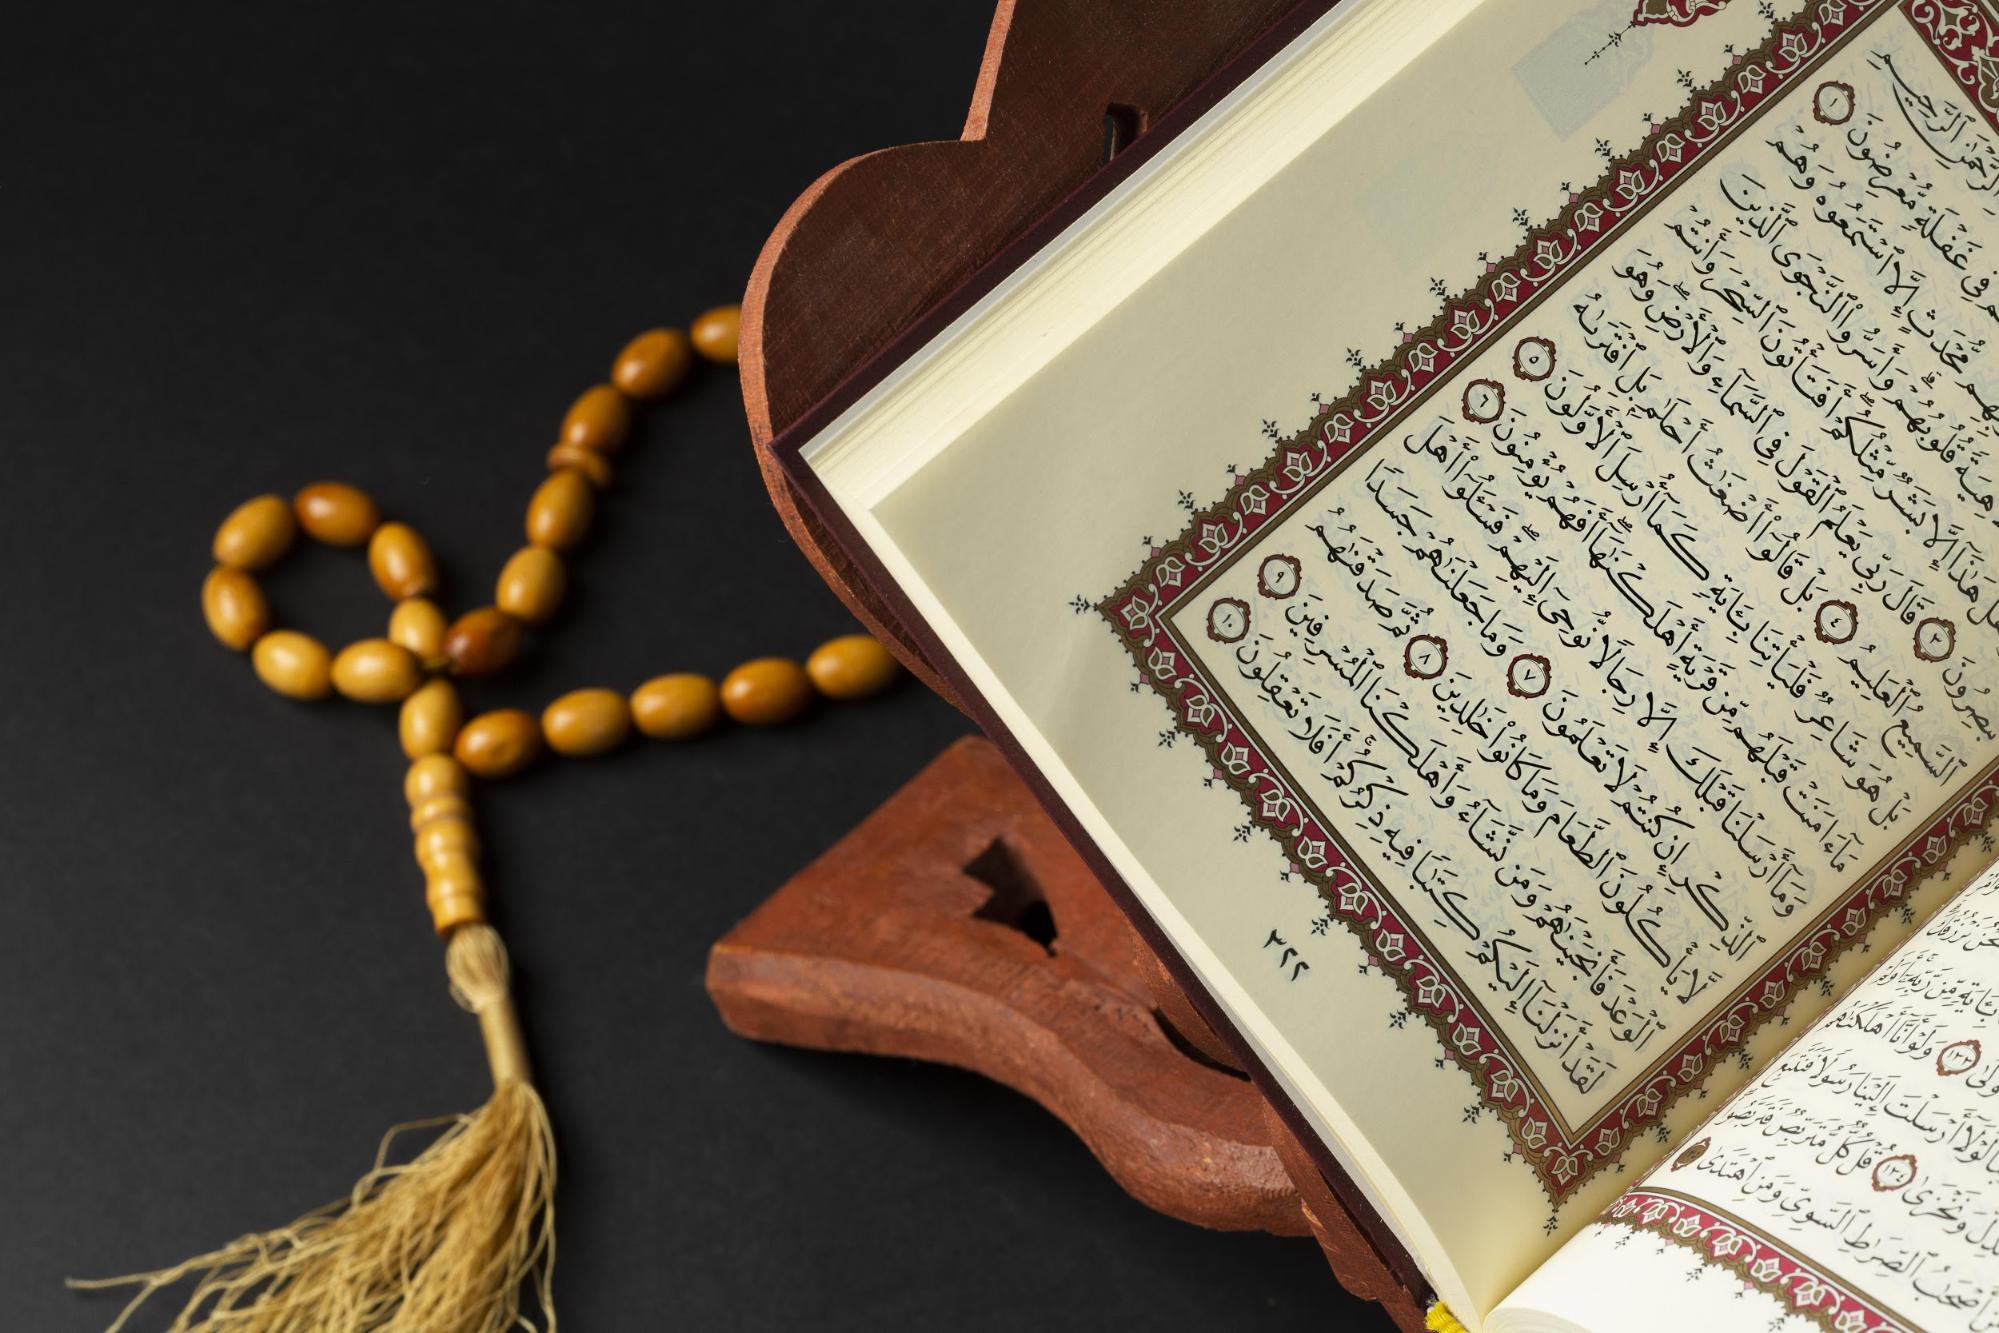 ٱلرَّحۡمَٰنِ ٱلرَّحِيمِ
فِي غَفۡلَةٖ مُّعۡرِضُونَ ١
مُّحۡدَثٍ إِلَّا ٱسۡتَمَعُوهُ وَهُمۡ
قُلُوبُهُمۡۗ وَأَسَرُّواْ ٱلنَّجۡوَى ٱلَّذِينَ
هَٰذَآ إِلَّا بَشَرٞ مِّثۡلُكُمۡۖ أَفَتَأۡتُونَ ٱلسِّحۡرَ وَأَنتُمۡ
٣ قَالَ رَبِّي يَعۡلَمُ ٱلۡقَوۡلَ فِي ٱلسَّمَآءِ وَٱلۡأَرۡضِۖ وَهُوَ
ٱلسَّمِيعُ ٱلۡعَلِيمُ ٤ بَلۡ قَالُوٓاْ أَضۡغَٰثُ أَحۡلَٰمِۭ بَلِ ٱفۡتَرَىٰهُ
بَلۡ هُوَ شَاعِرٞ فَلۡيَأۡتِنَا بِـَٔايَةٖ كَمَآ أُرۡسِلَ ٱلۡأَوَّلُونَ ٥
مَآ ءَامَنَتۡ قَبۡلَهُم مِّن قَرۡيَةٍ أَهۡلَكۡنَٰهَآۖ أَفَهُمۡ يُؤۡمِنُونَ ٦
وَمَآ أَرۡسَلۡنَا قَبۡلَكَ إِلَّا رِجَالٗا نُّوحِيٓ إِلَيۡهِمۡۖ فَسۡـَٔلُوٓاْ أَهۡلَ
ٱلذِّكۡرِ إِن كُنتُمۡ لَا تَعۡلَمُونَ ٧ وَمَا جَعَلۡنَٰهُمۡ جَسَدٗا
لَّا يَأۡكُلُونَ ٱلطَّعَامَ وَمَا كَانُواْ خَٰلِدِينَ ٨ ثُمَّ صَدَقۡنَٰهُمُ
ٱلۡوَعۡدَ فَأَنجَيۡنَٰهُمۡ وَمَن نَّشَآءُ وَأَهۡلَكۡنَا ٱلۡمُسۡرِفِينَ ٩
لَقَدۡ أَنزَلۡنَآ إِلَيۡكُمۡ كِتَٰبٗا فِيهِ ذِكۡرُكُمۡۚ أَفَلَا تَعۡقِلُونَ ١٠
٣٢٢
بِـَٔايَةٖ مِّن رَّبِّهِۦٓۚ أَوَلَمۡ
١٣٣ وَلَوۡ أَنَّآ أَهۡلَكۡنَٰهُم
لَوۡلَآ أَرۡسَلۡتَ إِلَيۡنَا رَسُولٗا فَنَتَّبِعَ
وَنَخۡزَىٰ ١٣٤ قُلۡ كُلّٞ مُّتَرَبِّصٞ فَتَرَبَّصُواْۖ
أَصۡحَٰبُ ٱلصِّرَٰطِ ٱلسَّوِيِّ وَمَنِ ٱهۡتَدَىٰ